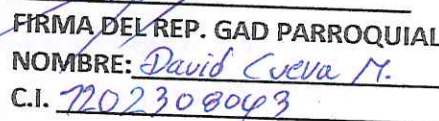 FIRMA DEL REP. GAD PARROQUIAL
NOMBRE: David Cueva M.
C.I. 1202308043